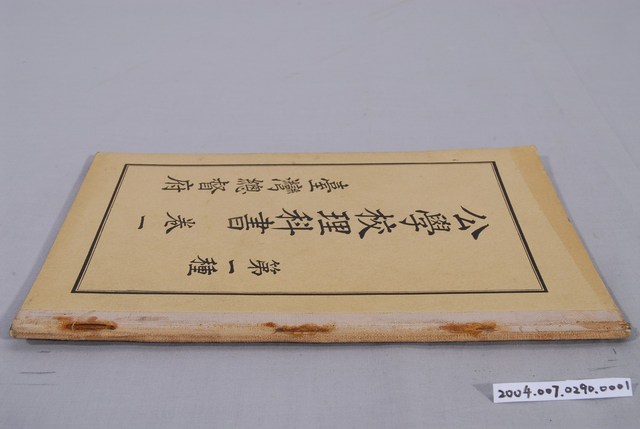 第一種
公學校理科書 卷一
臺灣總督府
2004.007.0290.0001